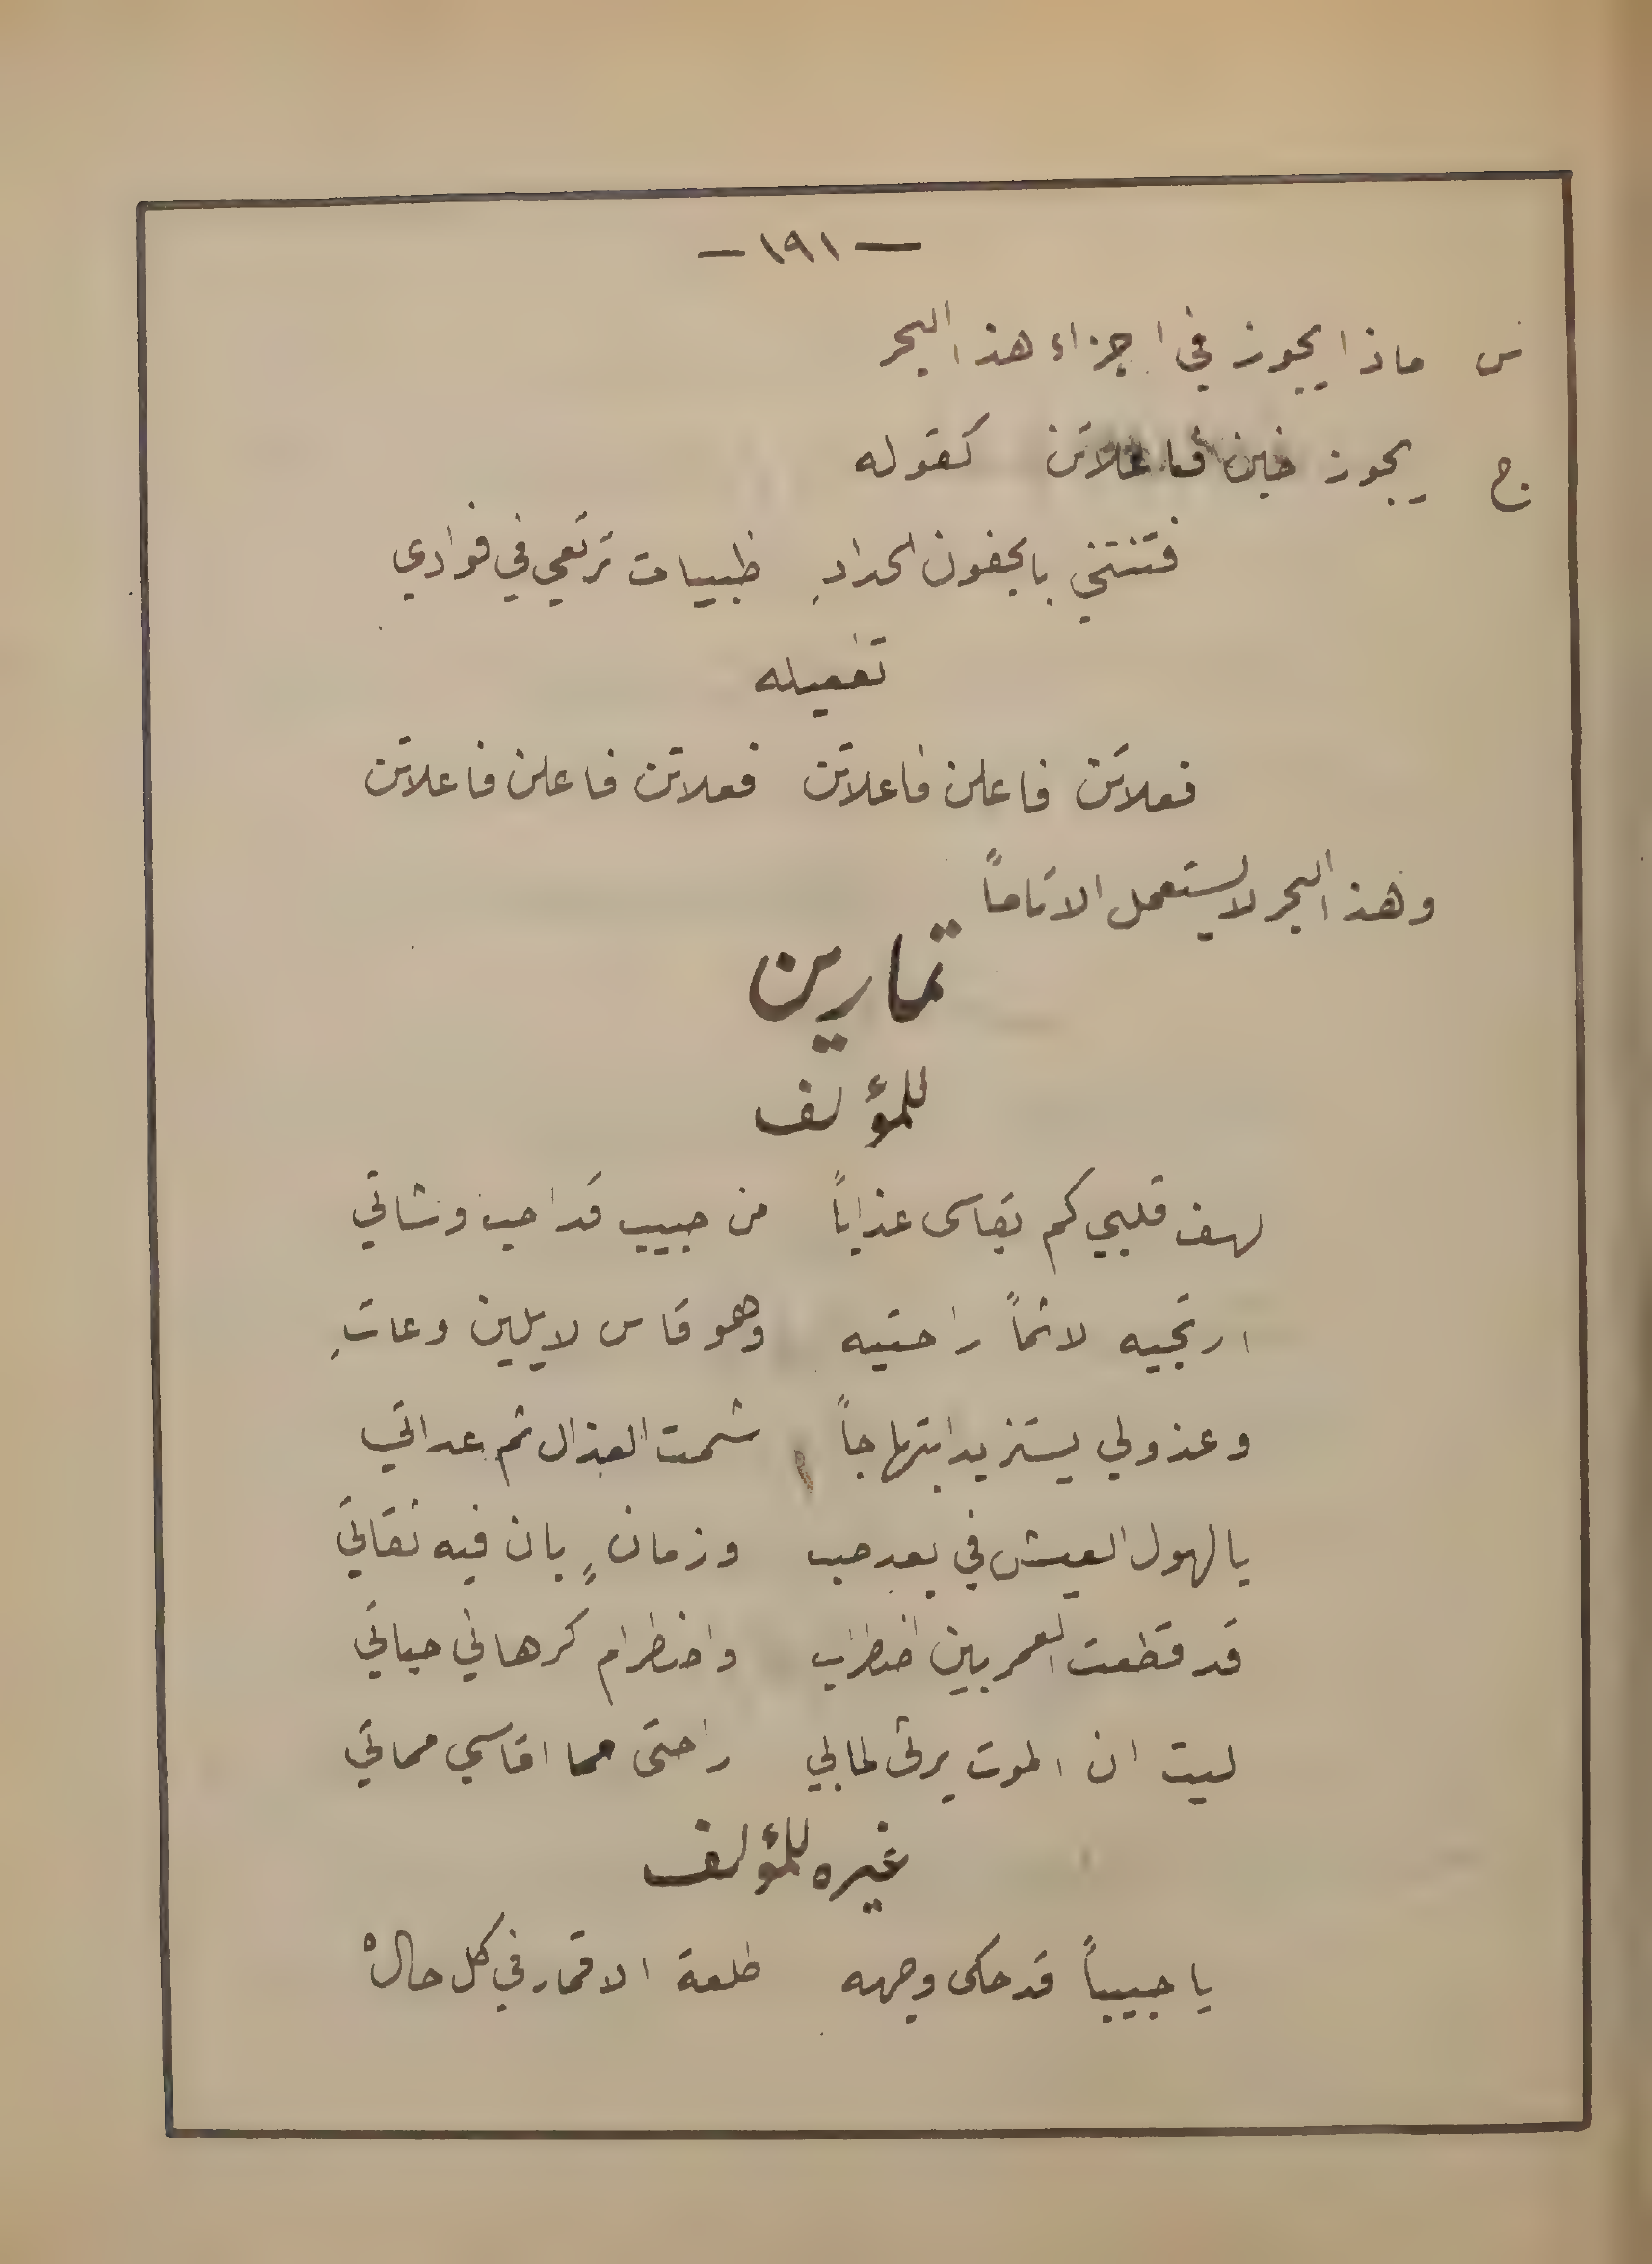 — ١٩١ —
س ماذا يجوز في اجزاء هذا البحر
ج يجوز خبن فاعلاتن كقوله
فتنتني بالجفون الحدادِ ظبيات ترتعي في فوادي
تفعيله
فعلاتن فاعلن فاعلاتن فعلاتن فاعلن فاعلاتن
وهذا البحر لا يستعمل الا تاماً
تمارين
للمؤلف
لهف قلبي كم يقاسى عذاباً من حبيب قد احب وشاتي
ارتجيه لاثماً راحتيه وهو قاس لا يلين وعاتِ
وعذولي يستزيد ابتهاجاً شمت العذال ثم عداتي
يا لهول العيش في بعد حب وزمانٍ بان فيه ثقاتي
قد قطعت العمر بين اضطراب واضطرام كرهاني حياتي
ليت ان الموت يرثى لحالي راحتى مما اقاسي مماتي
غيره للمؤلف
يا حبيباً قد حكى وجهه طلعة الاقمار في كل حالْ